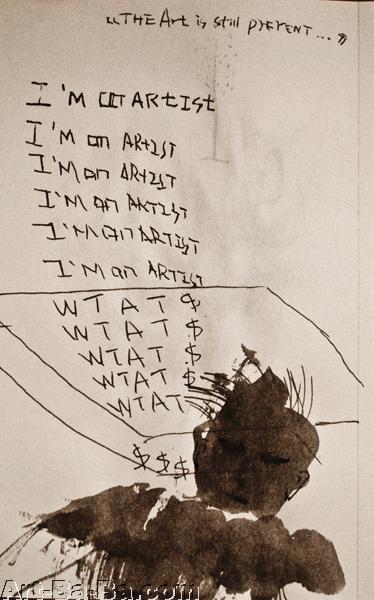 « THE Art is still PRERENT... »
I'M an ARTISt
I'M an ARTIST
I'M an ARTIST
I'M an ARTIST
I'M an ARTIST
I'M an ARTIST
WTAT $
WTAT $
WTAT $
WTAT $
WTAT
$$$
Art-Ba-Ba.com